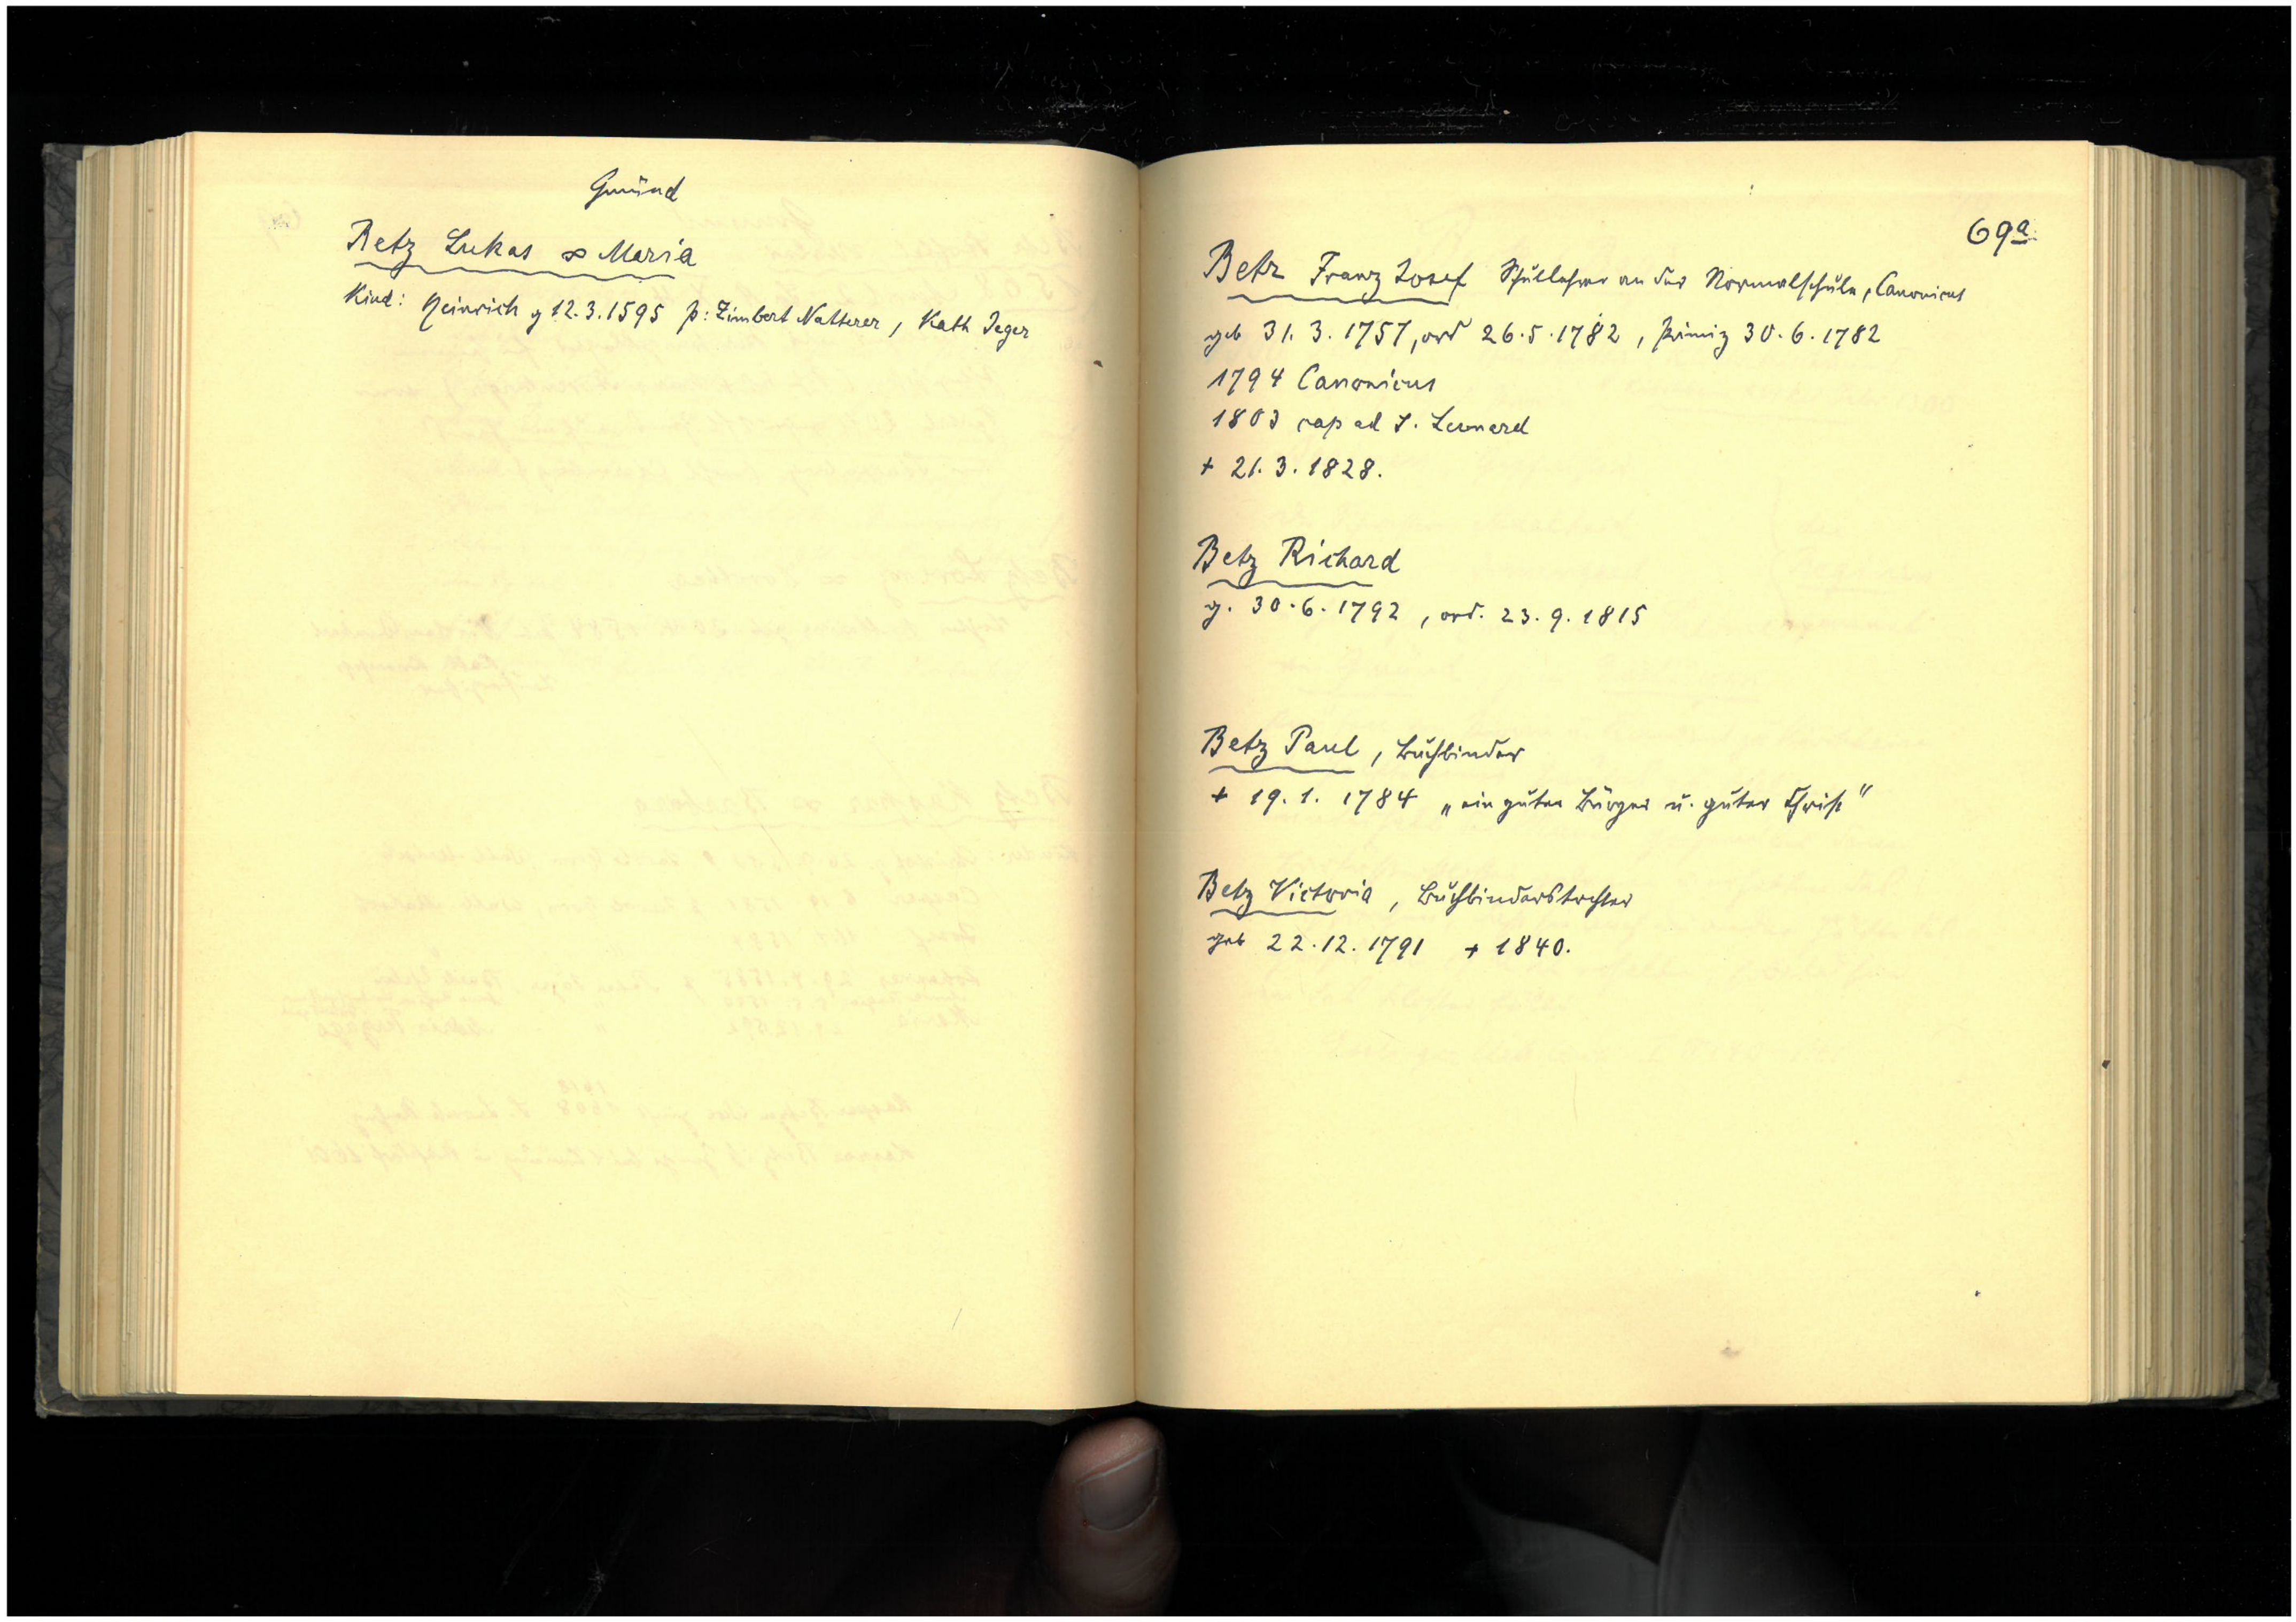 Gmünd
Betz Lukas ∞ Maria
Kind: Heinrich g 12.3.1595 p: Zimbert Natterer, Kath Jeger
69a
Betz Franz Josef Schullehrer an der Normalschule, Canonicus
geb 31. 3. 1757, ord 26.5.1782, Primiz 30.6.1782
1794 Canonicus
1803 cap ad S. Leonard
+ 21.3.1828.
Betz Richard
g. 30.6.1792, ord. 23.9.1815
Betz Paul, Buchbinder
+ 19.1. 1784 „ein guter Bürger u. guter Christ"
Betz Victoria, Buchbinderstochter
geb 22.12.1791 + 1840.